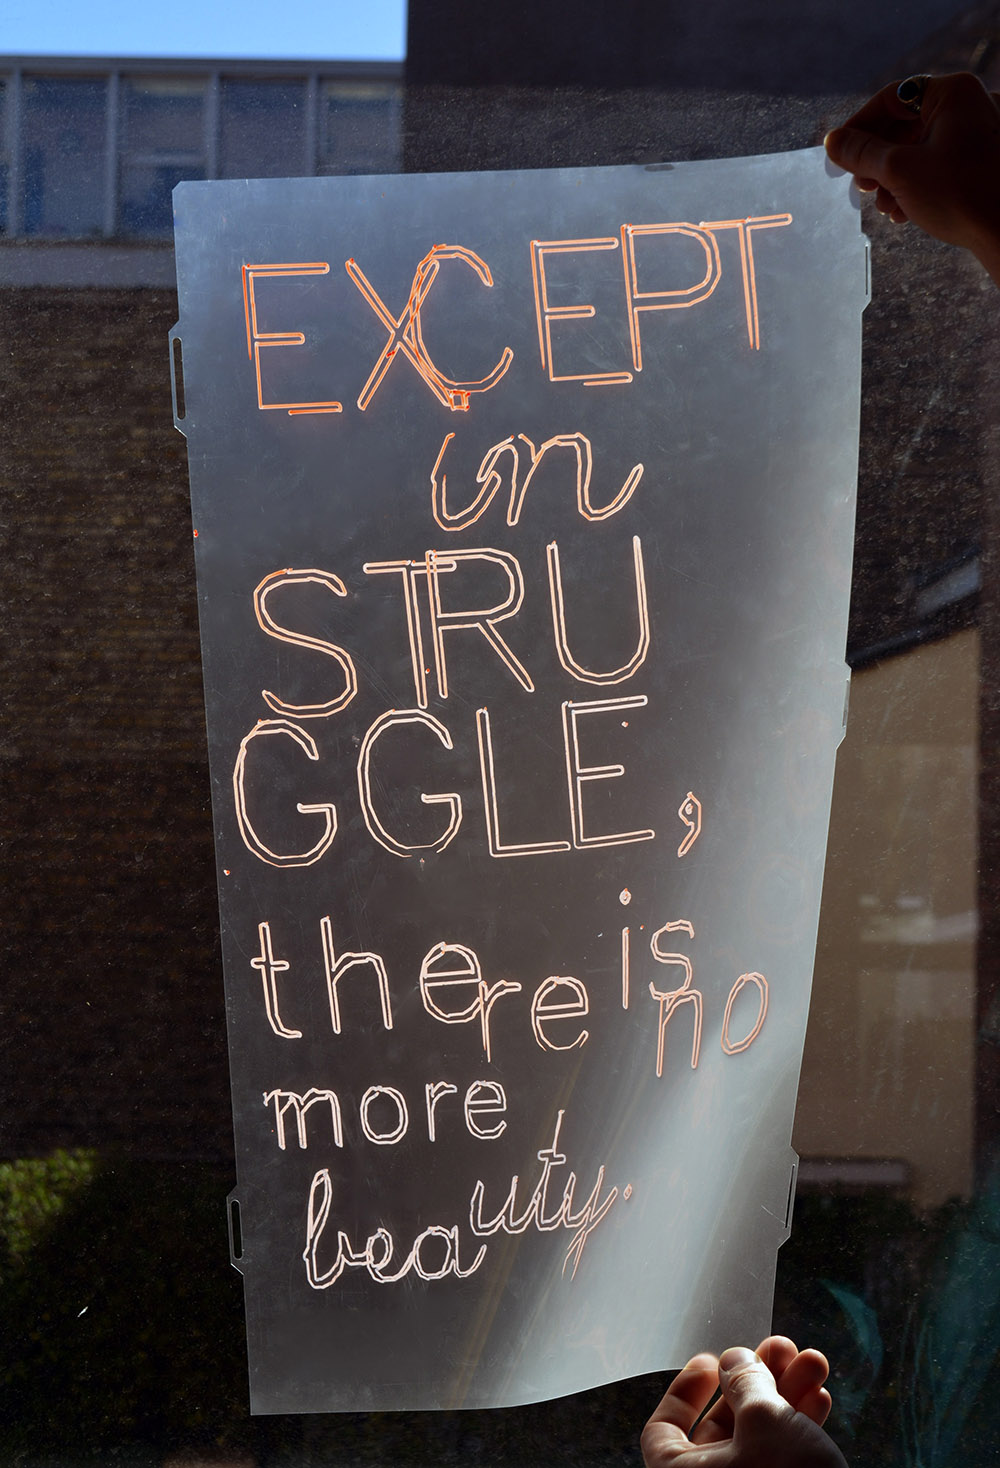 EXCEPT
in
STRU
GGLE,
there is no
more
beauty.